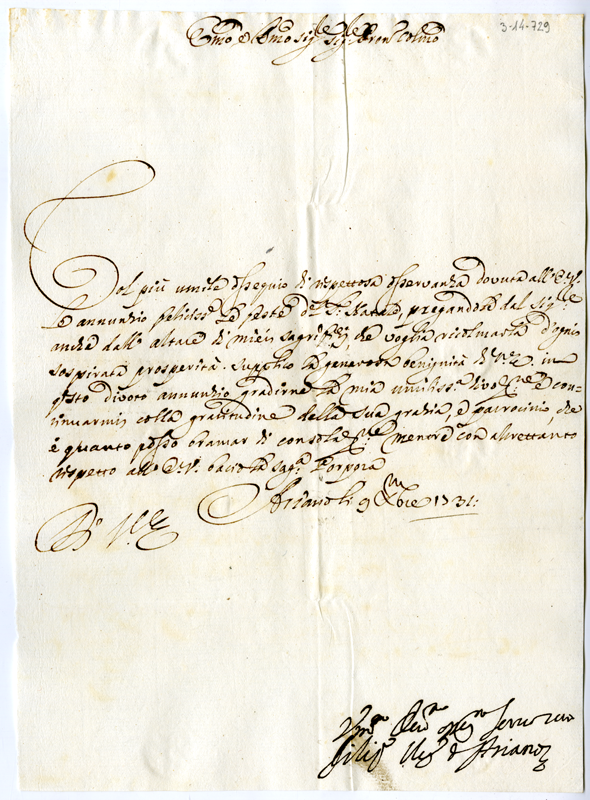 3-14-729
Emo e Rmo Sig.re Sig.re Pron Colmo
Col più umile ossequio di rispettosa osservanza dovuta all' E. V.
Le annunzio feliciss.e le feste del S. Natale, pregandole dal Sig.re
anche dall' altare di miei sagrificj, che voglia ricolmarla d'ogni
sospirata prosperità. Supplico la generosa benignità di V. E. in
q.sto divoto annunzio gradirne la mia umiliss.a divoz.ne e con-
tinuarmis colla gratitudine della sua grazia, e patrocinio, che
è quanto posso bramar di consolaz.ne, mentre con altrettanto
rispetto all' E. V. bacio la sag.a Porpora
Ariano li 9 Xbre 1731:
D. V. E.
Um.o Dev.o Obl.mo Servo vero
Filip.o Ves.o d'Ariano